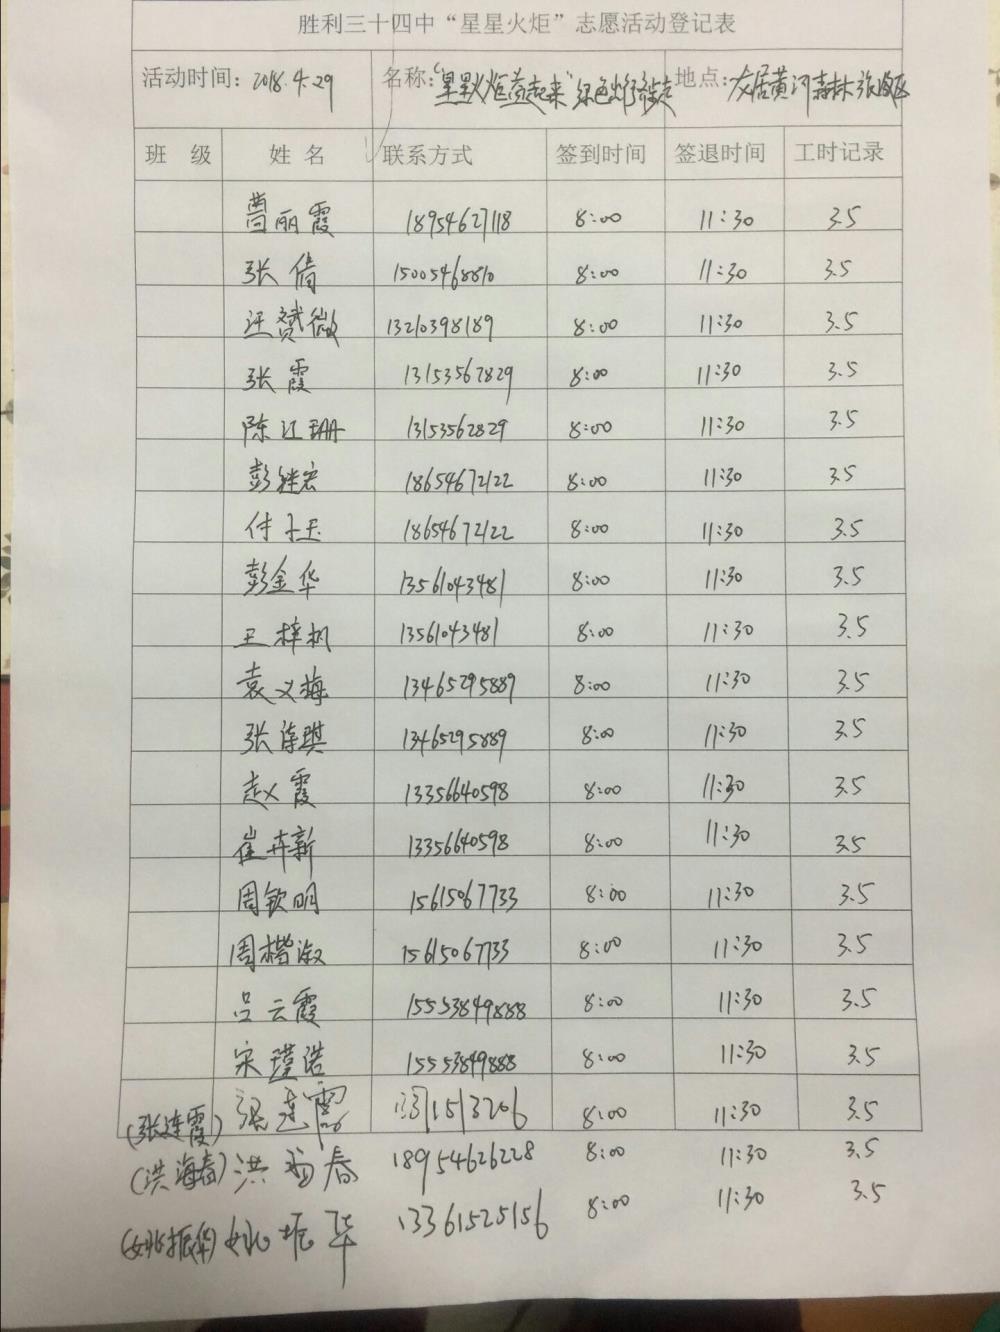 胜利三十四中“星星火炬”志愿活动登记表
活动时间：2018.4.29 名称：“星星火炬益起来”绿色出行徒走 地点：友居黄河森林
班 级 姓 名 联系方式 签到时间 签退时间 工时记录
曹丽霞 18954627118 8:00 11:30 3.5
张倩 15005468810 8:00 11:30 3.5
汪赟微 13210398189 8:00 11:30 3.5
张霞 13153562829 8:00 11:30 3.5
陈江珊 13153562829 8:00 11:30 3.5
彭继宏 18654672122 8:00 11:30 3.5
付子玉 18654672122 8:00 11:30 3.5
彭金华 13561043481 8:00 11:30 3.5
王梓帆 13561043481 8:00 11:30 3.5
袁义梅 13465295889 8:00 11:30 3.5
张 琪 13465295889 8:00 11:30 3.5
赵霞 13356640598 8:00 11:30 3.5
崔卉新 13356640598 8:00 11:30 3.5
周钦明 15615067733 8:00 11:30 3.5
周楷淑 15615067733 8:00 11:30 3.5
吕云霞 15553849888 8:00 11:30 3.5
宋瑾诺 15553849888 8:00 11:30 3.5
(张连霞) 张连霞 13371513206 8:00 11:30 3.5
(洪海春) 洪海春 18954626228 8:00 11:30 3.5
(姚振华) 姚振华 13361525156 8:00 11:30 3.5